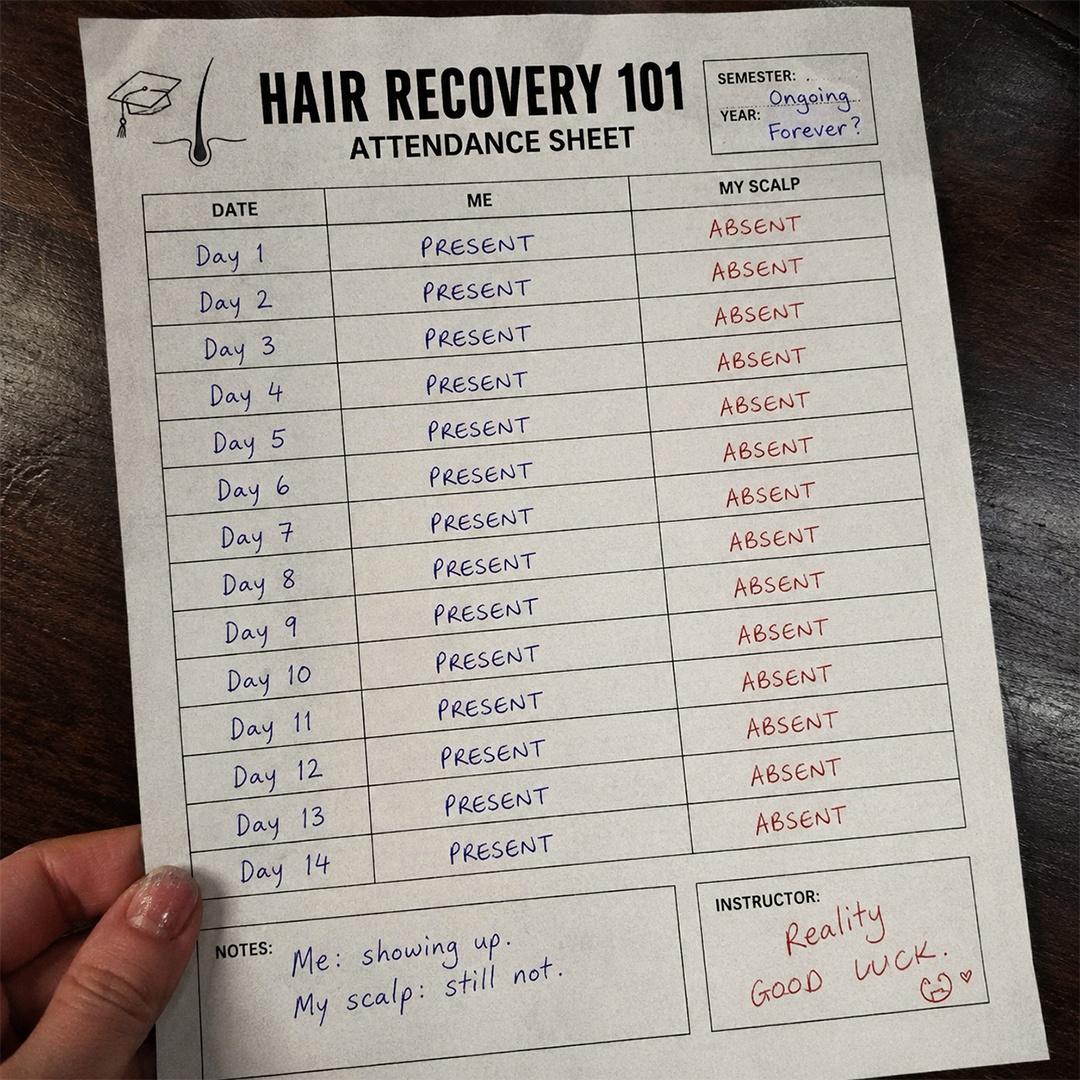 HAIR RECOVERY 101
ATTENDANCE SHEET
SEMESTER:
Ongoing
YEAR:
Forever?
DATE ME MY SCALP
Day 1 PRESENT ABSENT
Day 2 PRESENT ABSENT
Day 3 PRESENT ABSENT
Day 4 PRESENT ABSENT
Day 5 PRESENT ABSENT
Day 6 PRESENT ABSENT
Day 7 PRESENT ABSENT
Day 8 PRESENT ABSENT
Day 9 PRESENT ABSENT
Day 10 PRESENT ABSENT
Day 11 PRESENT ABSENT
Day 12 PRESENT ABSENT
Day 13 PRESENT ABSENT
Day 14 PRESENT ABSENT
NOTES: Me: showing up.
My scalp: still not.
INSTRUCTOR:
Reality
GOOD LUCK.